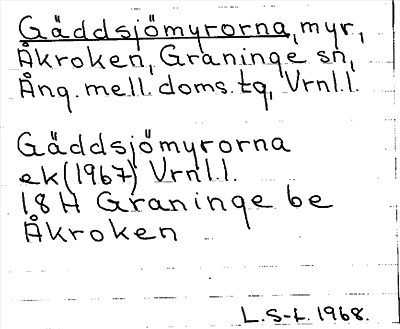 Gäddsjömyrorna, myr,
Åkroken, Graninge sn,
Ång. mell. doms. tg, Vrnl.l.
Gäddsjömyrorna
ek (1967) Vrnl.l.
18 H Graninge be
Åkroken
L.S-t. 1968.